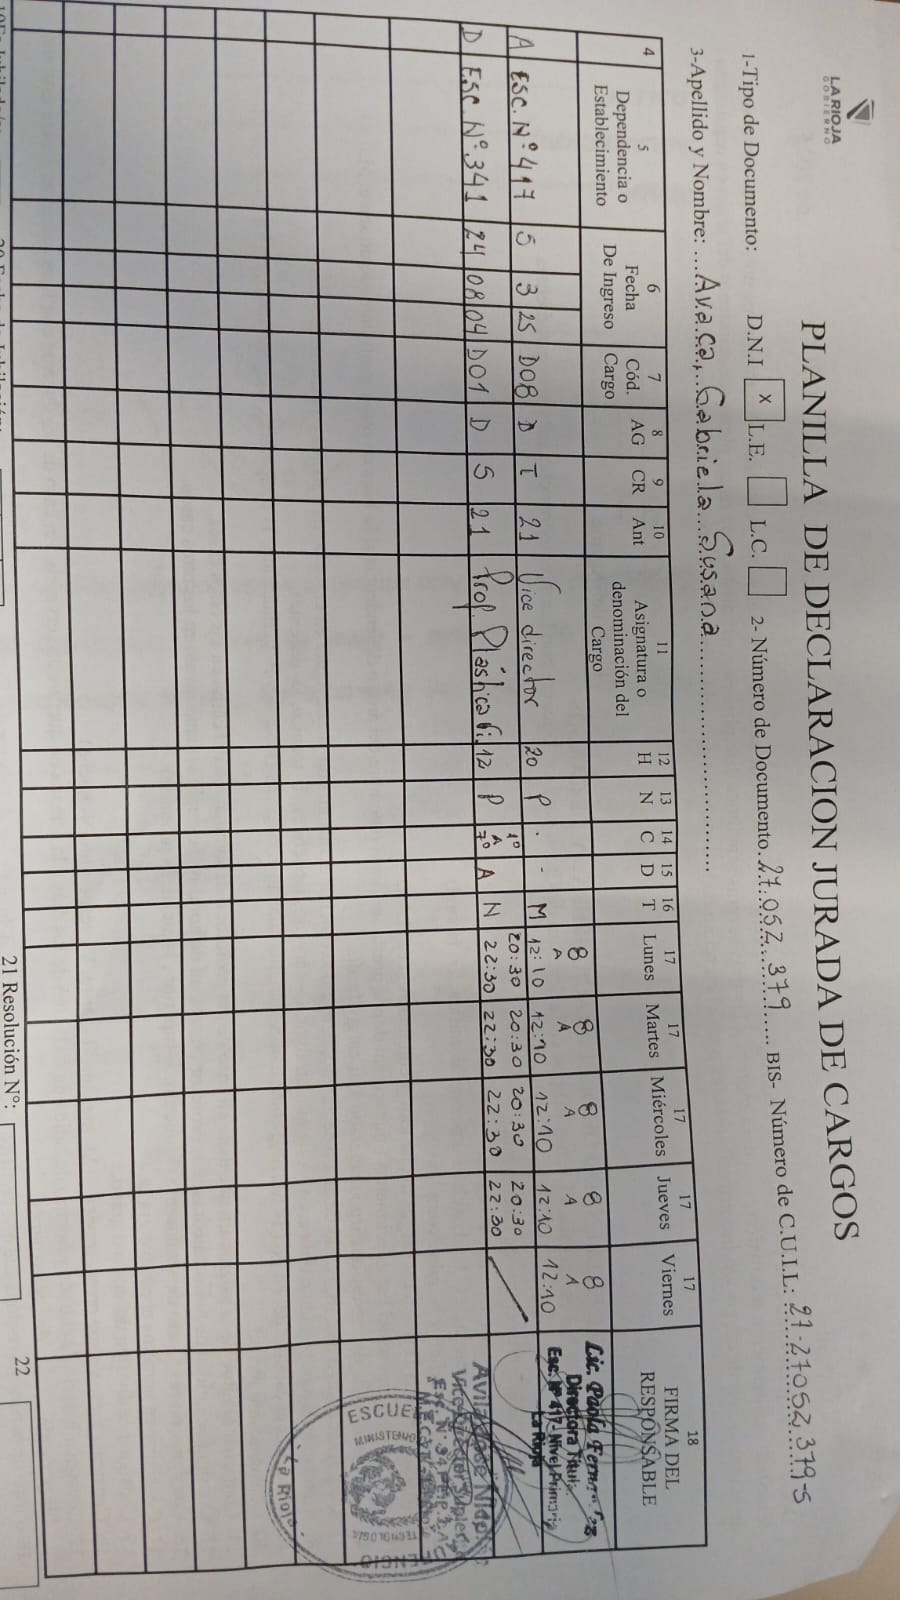 LA RIOJA
GOBIERNO
PLANILLA DE DECLARACION JURADA DE CARGOS
1-Tipo de Documento: D.N.I X L.E. L.C. 2- Número de Documento. 27.052.379 BIS- Número de C.U.I.L: 27-27052379-5
3-Apellido y Nombre: Avaca, Gabriela Susana
4 5 Dependencia o Establecimiento 6 Fecha De Ingreso 7 Cód. Cargo 8 AG 9 CR 10 Ant 11 Asignatura o denominación del Cargo 12 H 13 N 14 C 15 D 16 T 17 Lunes 17 Martes 17 Miércoles 17 Jueves 17 Viernes 18 FIRMA DEL RESPONSABLE
A ESC. N° 417 5 3 25 D08 D T 21 Vice director 20 P . - M 8 A 12:10 8 A 12:10 8 A 12:10 8 A 12:10 8 A 12:10
Lic. Paola
Directora Titular
Esc. Nº 417 - Nivel Primario
La Rioja
D ESC. N° 341 24 08 04 D01 D S 21 Prof. Plástica 12 P 1° A 7° A N 20:30 22:30 20:30 22:30 20:30 22:30 20:30 22:30
Vice Director Suplente
ESCUE
MINISTERIO
La Rioja
21 Resolución N°:
22